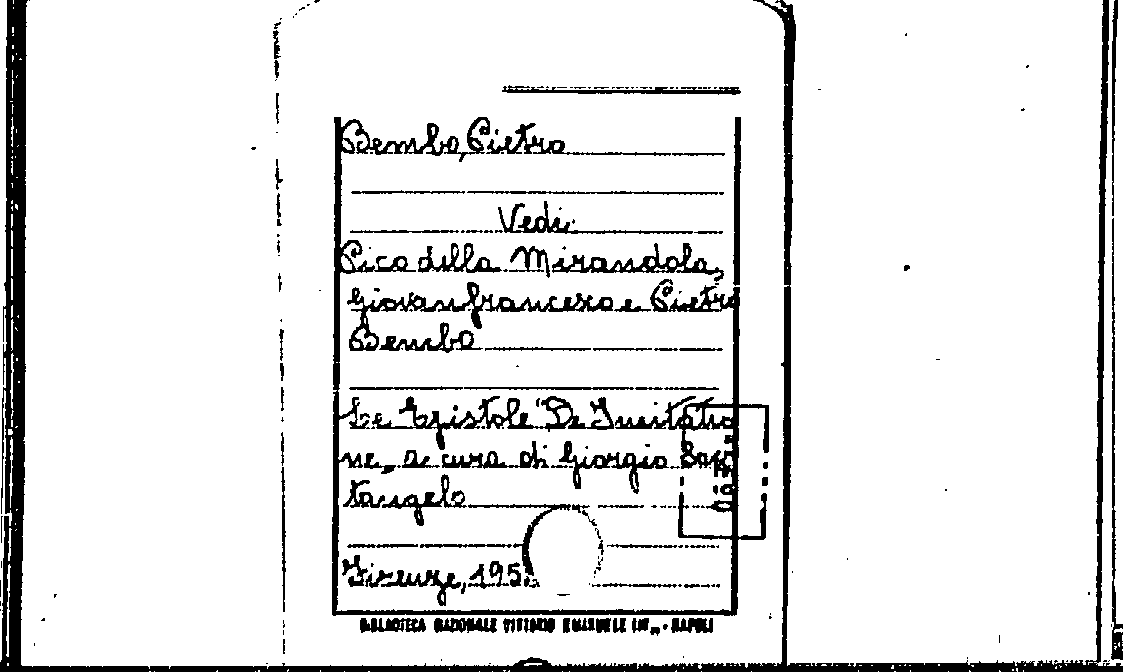 Bembo, Pietro
Vedi:
Pico della Mirandola,
Giovanfrancesco e Pietro
Bembo
Le Epistole "De Imitatio
ne„ a cura di Giorgio San
tangelo
Firenze, 195
BIBLIOTECA NAZIONALE VITTORIO EMANUELE III - NAPOLI